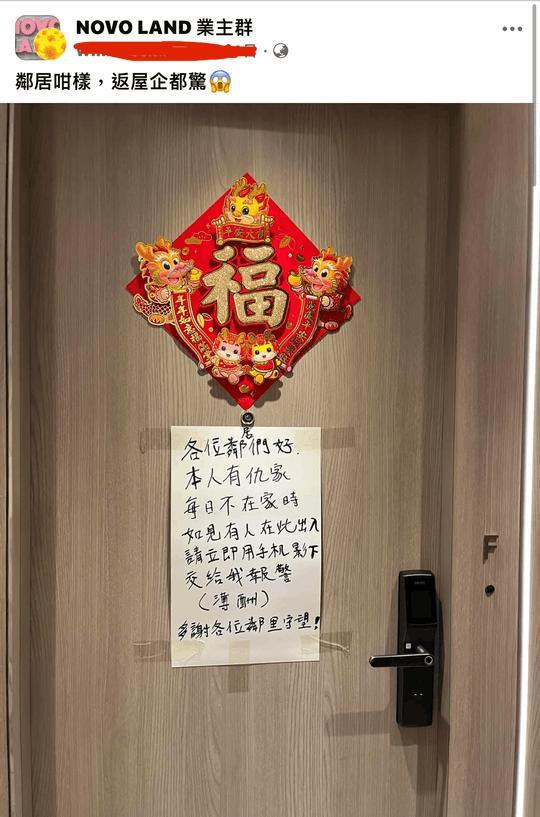 NOVO LAND 業主群
鄰居咁樣，返屋企都驚😱
平安大吉
福
居
各位鄰們好.
本人有仇家
每日不在家時
如見有人在此出入
請立即用手机影下
交給我報警
(薄酬)
多謝各位鄰里守望!
F